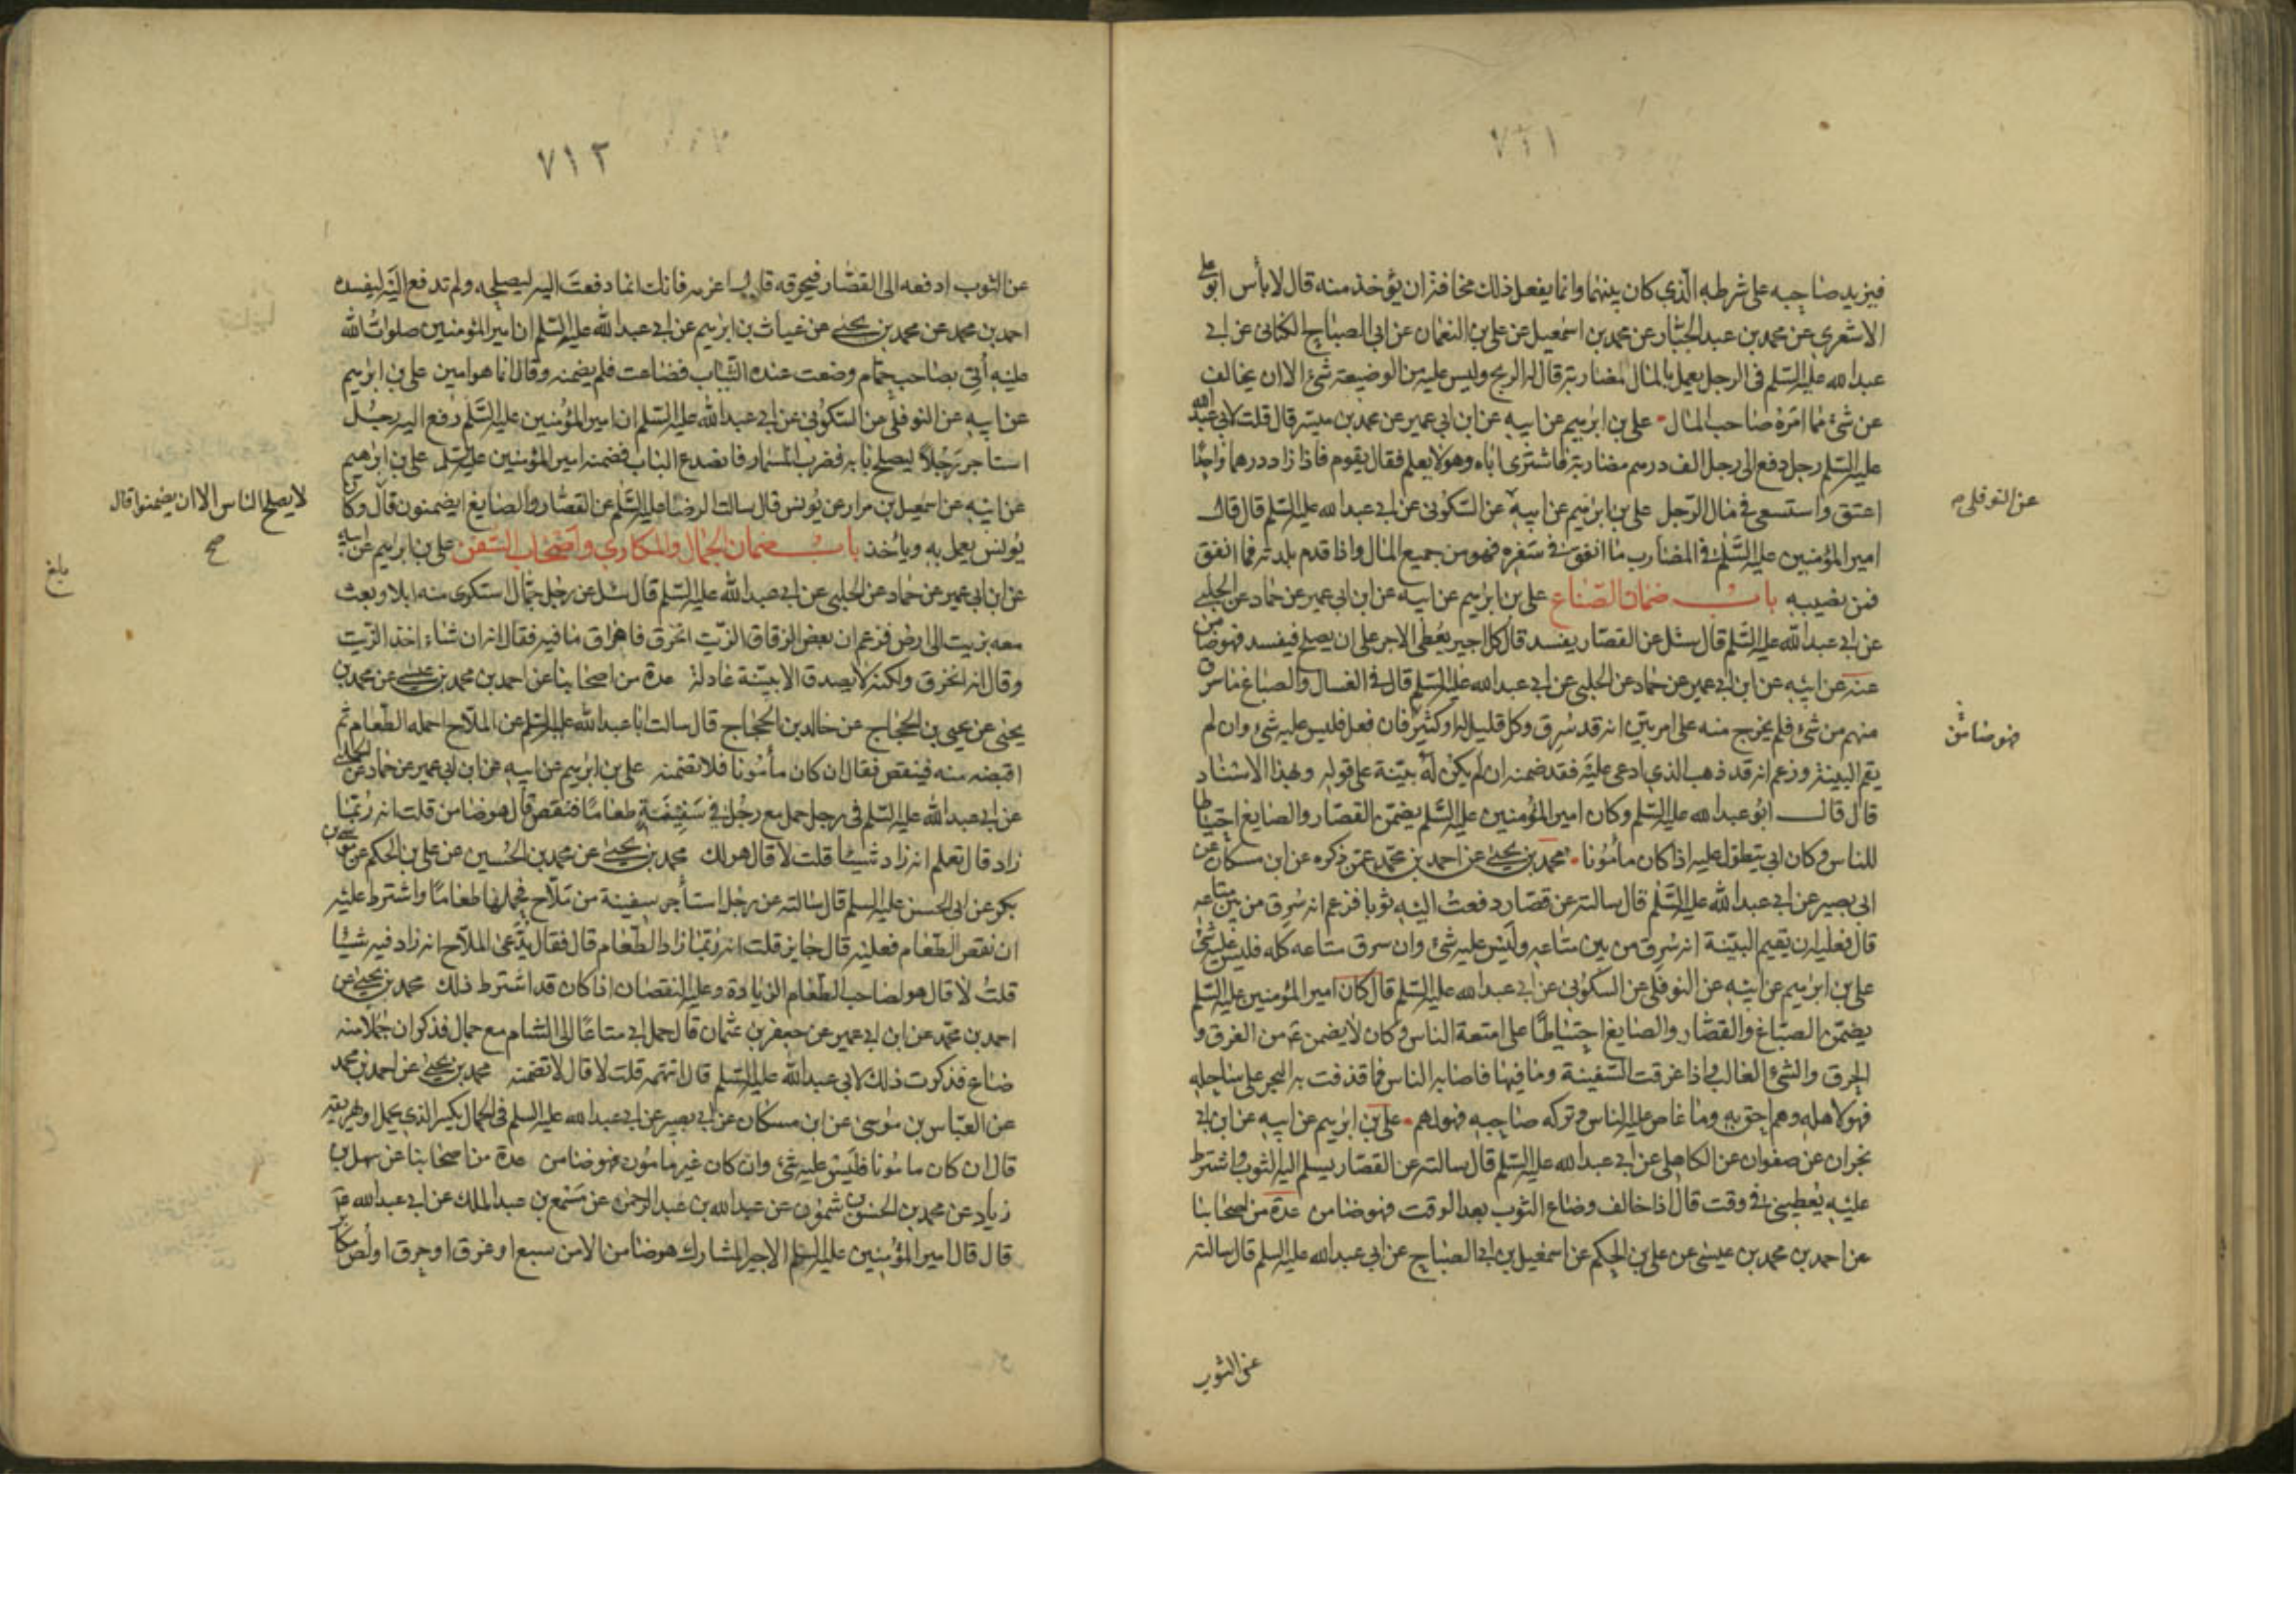 ٧١١
فيزيد صاحبه على شرطه الذي كان بينهما وانما يفعل ذلك مخافة ان يؤخذ منه قال لا بأس ابو علي
الاشعري عن محمد بن عبد الجبار عن محمد بن اسمعيل عن علي بن النعمان عن ابي الصباح الكناني عن ابي
عبد الله عليه السلم في الرجل يعمل بالمال مضاربة قال له الربح وليس عليه من الوضيعة شئ الا ان يخالف
عن شئ مما امره صاحب المال علي بن ابرهيم عن ابيه عن ابن ابي عمير عن محمد بن ميسر قال قلت لابي عبد الله
عليه السلم رجل دفع الى رجل الف درهم مضاربة فاشترى اباه وهو لا يعلم فقال يقوم فاذا زاد درهما واحدا
اعتق واستسعى في مال الرجل علي بن ابرهيم عن ابيه عن السكوني عن ابي عبد الله عليه السلم قال قال
عن النوفلي
امير المؤمنين عليه السلم في المضارب ما انفق في سفره فهو من جميع المال واذا قدم بلدته فما انفق
فمن نصيبه باب ضمان الصناع علي بن ابرهيم عن ابيه عن ابن ابي عمير عن حماد عن الحلبي
عن ابي عبد الله عليه السلم قال سئل عن القصار يفسد قال كل اجير يعطى الاجر على ان يصلح فيفسد فهو ضامن
عنه عن ابيه عن ابن ابي عمير عن حماد عن الحلبي عن ابي عبد الله عليه السلم قال في الغسال والصباغ ما سرق
منهم من شئ فلم يخرج منه على امر بين انه قد سرق وكل قليل له او كثير فان فعل فليس عليه شئ وان لم
فهو ضامن
يقم البينة وزعم انه قد ذهب الذي ادعي عليه فقد ضمنه ان لم يكن له بينة على قوله وبهذا الاسناد
قال قال ابو عبد الله عليه السلم وكان امير المؤمنين عليه السلم يضمن القصار والصايغ احتياطا
للناس وكان ابي يتطول عليه اذا كان مأمونا محمد بن يحيى عن احمد بن محمد عمن ذكره عن ابن مسكان عن
ابي بصير عن ابي عبد الله عليه السلم قال سالته عن قصار دفعت اليه ثوبا فزعم انه سرق من بين متاعه
قال فعليه ان يقيم البينة انه سرق من بين متاعه وليس عليه شئ وان سرق متاعه كله فليس عليه شئ
علي بن ابرهيم عن ابيه عن النوفلي عن السكوني عن ابي عبد الله عليه السلم قال كان امير المؤمنين عليه السلم
يضمن الصباغ والقصار والصايغ احتياطا على امتعة الناس وكان لا يضمن من الغرق و
الحرق والشئ الغالب واذا غرقت السفينة وما فيها فاصابه الناس فما قذفت به البحر على ساحله
فهو لاهله وهم احق به وما غاص عليه الناس وتركه صاحبه فهو لهم علي بن ابرهيم عن ابيه عن ابن ابي
نجران عن صفوان عن الكاهلي عن ابي عبد الله عليه السلم قال سالته عن القصار يسلم اليه الثوب واشترط
عليه يعطيني في وقت قال اذا خالف وضاع الثوب بعد الوقت فهو ضامن عدة من اصحابنا
عن احمد بن محمد بن عيسى عن علي بن الحكم عن اسمعيل بن ابي الصباح عن ابي عبد الله عليه السلم قال سالته
عن الثوب
٧١٢
عن الثوب ادفعه الى القصار فيحرقه قال اغرمه فانك انما دفعت اليه ليصلحه ولم تدفع اليه ليفسده
احمد بن محمد عن محمد بن يحيى عن غياث بن ابرهيم عن ابي عبد الله عليه السلم ان امير المؤمنين صلوات الله
عليه أتي بصاحب حمام وضعت عنده الثياب فضاعت فلم يضمنه وقال انما هو امين علي بن ابرهيم
عن ابيه عن النوفلي عن السكوني عن ابي عبد الله عليه السلم ان امير المؤمنين عليه السلم رفع اليه رجل
استاجر رجلا ليصلح بابه فضرب المسمار فانصدع الباب فضمنه امير المؤمنين عليه السلم علي بن ابرهيم
عن ابيه عن اسمعيل بن مرار عن يونس قال سالت الرضا عليه السلم عن القصار والصايغ ايضمنون قال وكان
لا يصلح الناس الا ان يضمنوا قال
صح
يونس يعمل به ويأخذ باب ضمان الجمال والمكاري واصحاب السفن علي بن ابرهيم عن ابيه
بلغ
عن ابن ابي عمير عن حماد عن الحلبي عن ابي عبد الله عليه السلم قال سئل عن رجل جمال استكري منه ابلا وبعث
معه بزيت الى ارض فزعم ان بعض الزقاق الزيت انخرق فاهراق ما فيه فقال انه ان شاء اخذ الزيت
وقال انه انخرق ولكنه لا يصدق الا ببينة عادلة عدة من اصحابنا عن احمد بن محمد بن عيسى عن محمد بن
يحيى عن يحيى بن الحجاج عن خالد بن الحجاج قال سالت ابا عبد الله عليه السلم عن الملاح احمله الطعام ثم
اقبضه منه فينقص فقال ان كان مأمونا فلا تضمنه علي بن ابرهيم عن ابيه عن ابن ابي عمير عن حماد عن الحلبي
عن ابي عبد الله عليه السلم في رجل حمل مع رجل في سفينة طعاما فنقص قال هو ضامن قلت انه ربما
زاد قال تعلم انه زاد شيئا قلت لا قال هو لك محمد بن يحيى عن محمد بن الحسين عن علي بن الحكم عن موسى بن
بكر عن ابي الحسن عليه السلم قال سالته عن رجل استأجر سفينة من ملاح فحملها طعاما واشترط عليه
ان نقص الطعام فعليه قال جايز قلت انه ربما زاد الطعام قال فقال يدعي الملاح انه زاد فيه شيئا
قلت لا قال هو لصاحب الطعام الزيادة وعليه النقصان اذا كان قد اشترط ذلك محمد بن يحيى عن
احمد بن محمد عن ابن ابي عمير عن جعفر بن عثمان قال حمل ابي متاعا الى الشام مع جمال فذكر ان حملا منه
ضاع فذكرت ذلك لابي عبد الله عليه السلم قال اتتهمه قلت لا قال لا تضمنه محمد بن يحيى عن احمد بن محمد
عن العباس بن موسى عن ابن مسكان عن ابي بصير عن ابي عبد الله عليه السلم في الجمال يكسر الذي يحمل او يهريقه
قال ان كان مامونا فليس عليه شئ وان كان غير مامون فهو ضامن عدة من اصحابنا عن سهل بن
زياد عن محمد بن الحسن بن شمون عن عبد الله بن عبد الرحمن عن مسمع بن عبد الملك عن ابي عبد الله
قال قال امير المؤمنين عليه السلم الاجير المشارك هو ضامن الا من سبع او غرق او حرق او لص مكابر